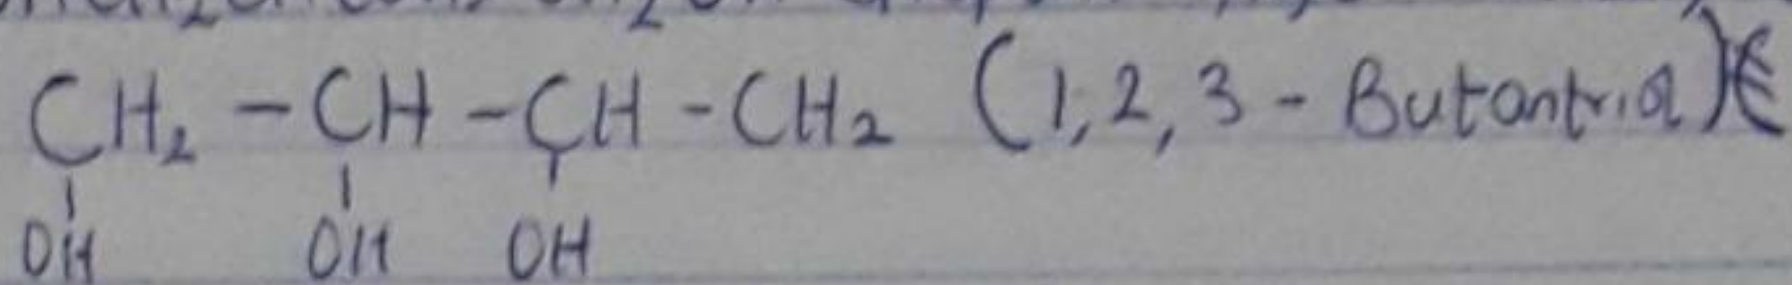 CH₂ - CH - CH - CH₂ (1,2,3 - Butantriol)
OH OH OH